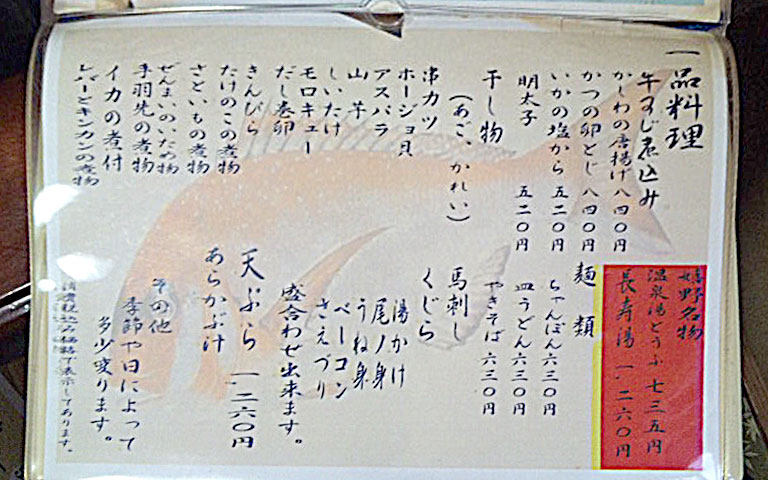 一品料理
牛すじ煮込み
かしわの唐揚げ 八四〇円
かつの卵とじ 八四〇円
いかの塩から 五二〇円
明太子 五二〇円
干し物
（あご、かれい）
串カツ
ホージョ貝
アスパラ
山芋
しいたけ
モロキュー
だし巻卵
きんぴら
たけのこの煮物
さといもの煮物
ぜんまいのいため物
手羽先の煮物
イカの煮付
レバーとキンカンの煮物
嬉野名物
温泉湯どうふ 七三五円
長寿湯 一、二六〇円
麺類
ちゃんぽん 六三〇円
皿うどん 六三〇円
やきそば 六三〇円
馬刺し
くじら
湯かけ
尾ノ身
うね身
ベーコン
さえづり
盛合わせ出来ます。
天ぷら 一、二六〇円
あらかぶ汁
その他
季節や日によって
多少変ります。
消費税込み価格で表示してあります。